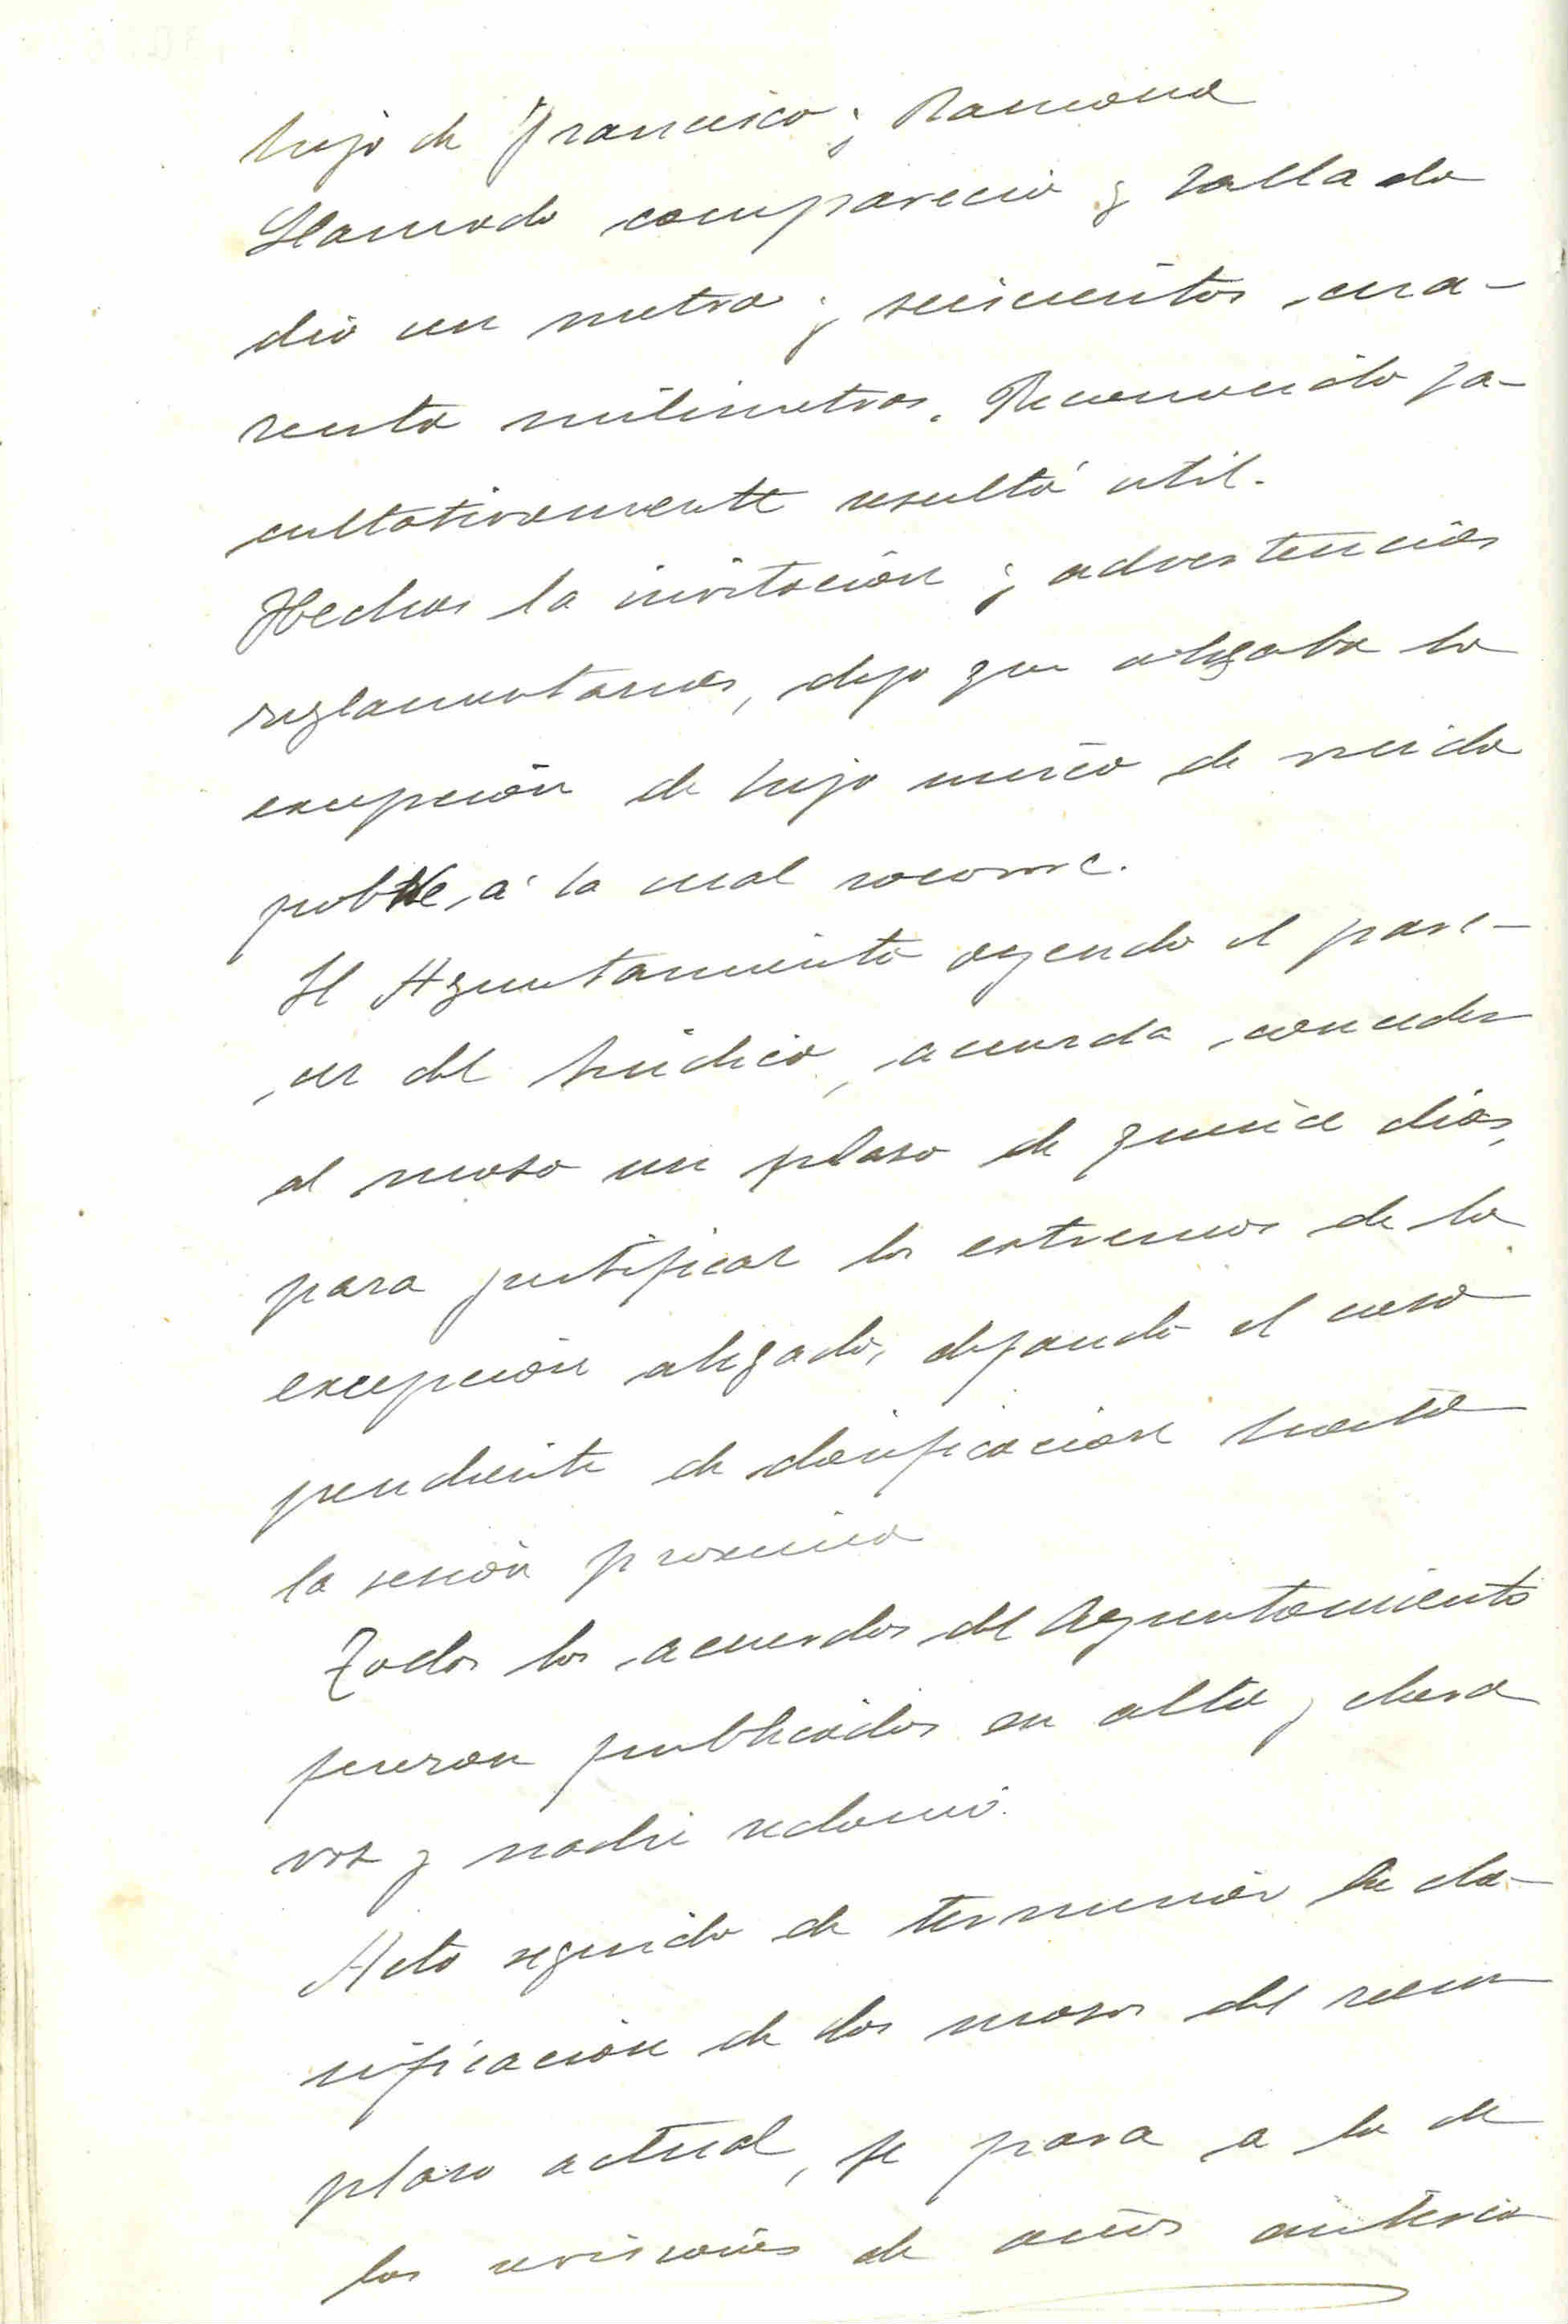 hijo de Francisco y Ramona
Llamado comparecio y tallado
dio un metro y seiscientos cua-
renta milimetros. Reconocido fa-
cultativamente resultó util.
Hechas la invitación y advertencias
reglamentarias, dijo que alegaba la
excepción de hijo unico de viuda
pobre, á la cual socorre.
El Ayuntamiento oyendo el pare-
cer del Sindico, acuerda conceder
al mozo un plazo de quince dias,
para justificar los extremos de la
excepción alegada, dejando el caso
pendiente de clasificacion hasta
la sesión proxima
Todos los acuerdos del Ayuntamiento
fueron publicados en alta y clara
voz y nadie reclamó.
Acto seguido de terminar la cla-
sificacion de los mozos del reem
plazo actual, se pasa a la de
las revisiones de años anterio